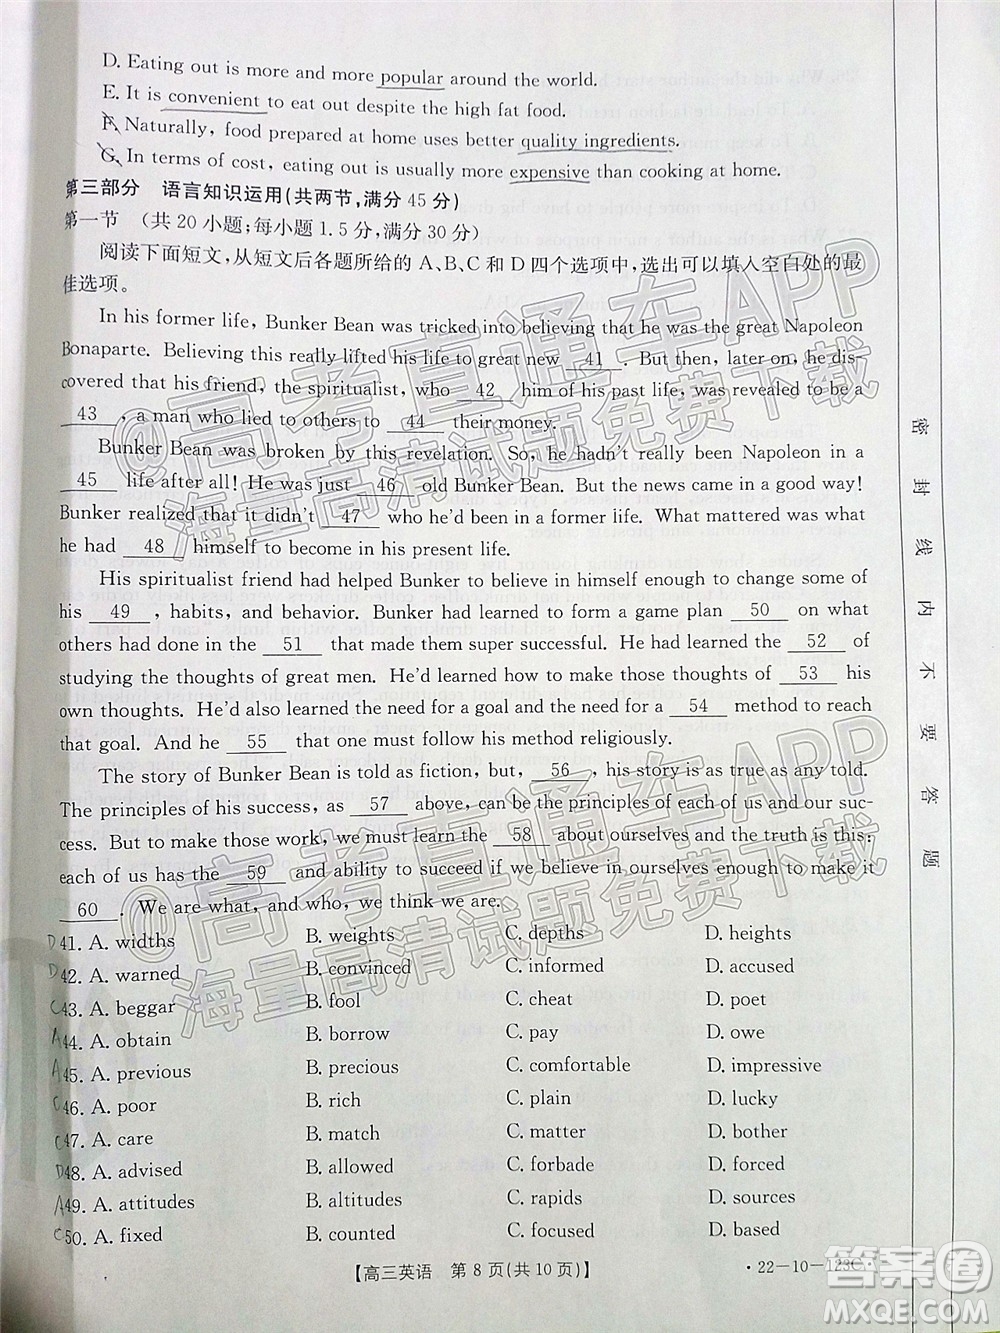 D. Eating out is more and more popular around the world.
E. It is convenient to eat out despite the high fat food.
F. Naturally, food prepared at home uses better quality ingredients.
G. In terms of cost, eating out is usually more expensive than cooking at home.
第三部分 语言知识运用(共两节,满分 45 分)
第一节 (共 20 小题;每小题 1.5 分,满分 30 分)
阅读下面短文,从短文后各题所给的 A、B、C 和 D 四个选项中,选出可以填入空白处的最
佳选项。
In his former life, Bunker Bean was tricked into believing that he was the great Napoleon
Bonaparte. Believing this really lifted his life to great new 41 . But then, later on, he dis-
covered that his friend, the spiritualist, who 42 him of his past life, was revealed to be a
43 , a man who lied to others to 44 their money.
Bunker Bean was broken by this revelation. So, he hadn't really been Napoleon in a
45 life after all! He was just 46 old Bunker Bean. But the news came in a good way!
Bunker realized that it didn't 47 who he'd been in a former life. What mattered was what
he had 48 himself to become in his present life.
His spiritualist friend had helped Bunker to believe in himself enough to change some of
his 49 , habits, and behavior. Bunker had learned to form a game plan 50 on what
others had done in the 51 that made them super successful. He had learned the 52 of
studying the thoughts of great men. He'd learned how to make those thoughts of 53 his
own thoughts. He'd also learned the need for a goal and the need for a 54 method to reach
that goal. And he 55 that one must follow his method religiously.
The story of Bunker Bean is told as fiction, but, 56 , his story is as true as any told.
The principles of his success, as 57 above, can be the principles of each of us and our suc-
cess. But to make those work, we must learn the 58 about ourselves and the truth is this:
each of us has the 59 and ability to succeed if we believe in ourselves enough to make it
60 . We are what, and who, we think we are.
D 41. A. widths B. weights C. depths D. heights
D 42. A. warned B. convinced C. informed D. accused
C 43. A. beggar B. fool C. cheat D. poet
A 44. A. obtain B. borrow C. pay D. owe
A 45. A. previous B. precious C. comfortable D. impressive
C 46. A. poor B. rich C. plain D. lucky
C 47. A. care B. match C. matter D. bother
D 48. A. advised B. allowed C. forbade D. ordered
A 49. A. attitudes B. altitudes C. rapids D. sources
C 50. A. fixed B. counted C. focused D. based
【高三英语 第 8 页(共 10 页)】 ·22-10-123C·
密 封 线 内 不 要 答 题
@高考直通车APP
海量高清试题免费下载
@高考直通车APP
海量高清试题免费下载
答案圈
MXQE.COM